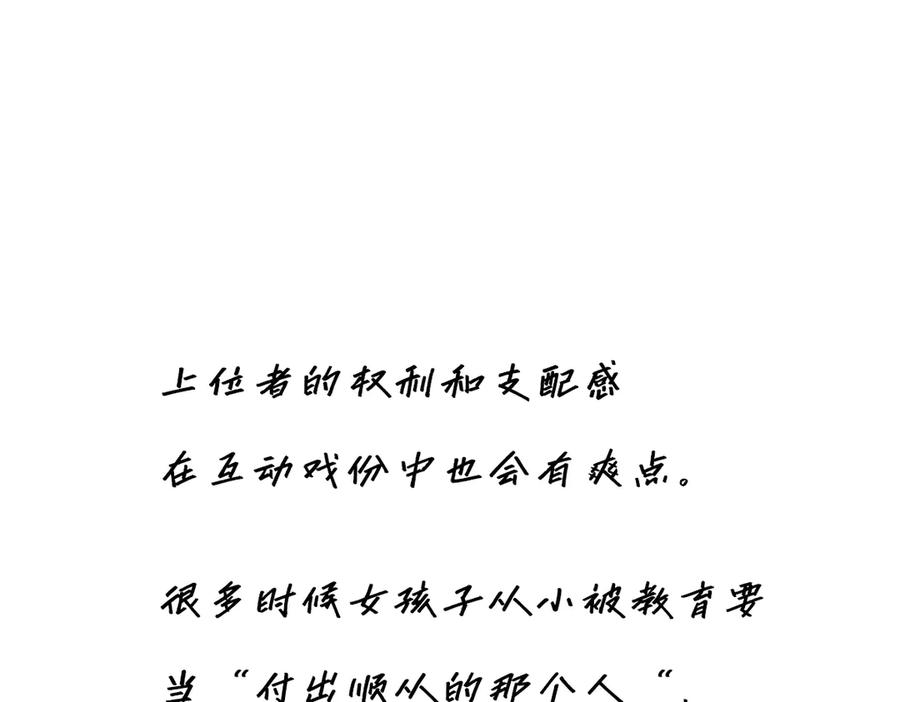 上位者的权利和支配感
在互动戏份中也会有爽点。
很多时候女孩子从小被教育要
当“付出顺从的那个人“，